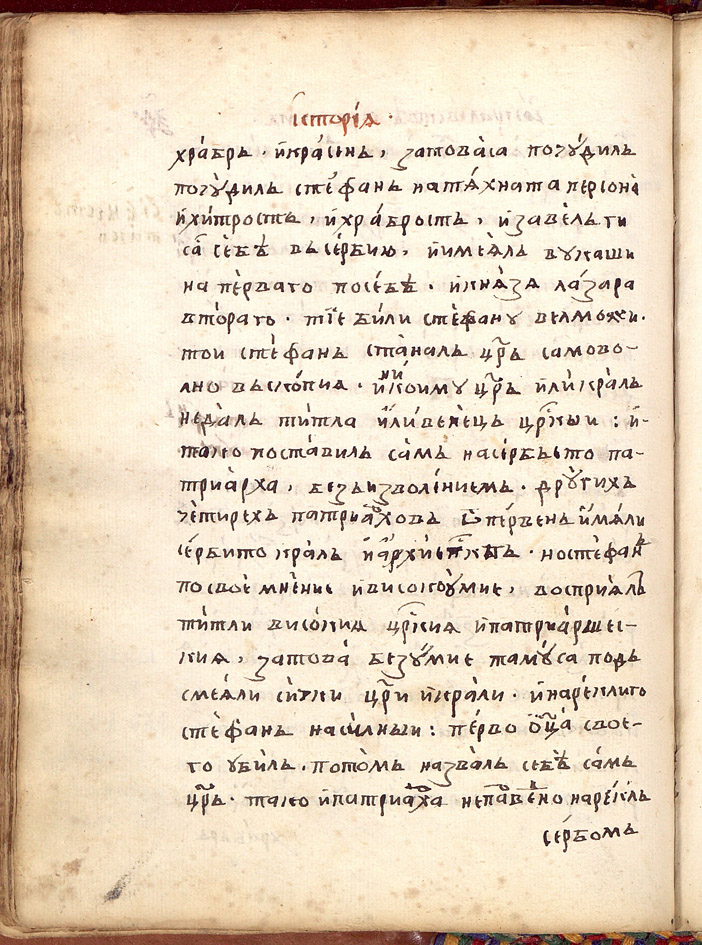 історїѧ·
хра́брь · и҆кра́сень, зато́ва́са почꙋ́диль
почꙋ́диль сте́фань натѧ́хната персо́не
и҆хи́трость, и҆хра́брость, и҆заве́ль ги
са̑ себѣ̀ въсе́рбию, и҆име́ѧль вꙋкаши
на пе́рваго посе́бѣ · и҆кнѧ́зѧ ла́зара
вто́раго · тїе́ били сте́фанꙋ велможи.
тои сте́фань ста́наль цр҃ь самово-
лно въско́пиѧ · ни и҆коимꙋ цр҃ь или кра́ль
неда́ль ти́тла и҆ли́ вене́ць цр҃кыи : и҆-
та́ко поста́виль са́мь насе́рбьето па-
трїа́рха, безьизволе́ниемь · дрꙋ́гихь
че́тирехь патриа́рховь ѿпе́рвень и҆мѧ́ли
се́рбито кра́ль и҆архїепⷭ҇кпь · но сте́фань
по свое мне́ние и҆високоꙋ́мие, восприѧ́ль
ти́тли висо́киѧ цр҃киѧ и҆патриа́ршес-
киѧ, зато́ва безꙋ́мие тамꙋ́са подь
сме́ѧли си́тки цр҃и и҆кра́ли · и҆наре́клиго
сте́фань наси́лныи : пе́рво ѿц҃а̀ свое-
го ꙋби́ль · пото́мь назва́ль себѣ̀ са́мь
цр҃ь · та́ко и҆патриа́рха непра́ведно наре́кль
се́рбомь